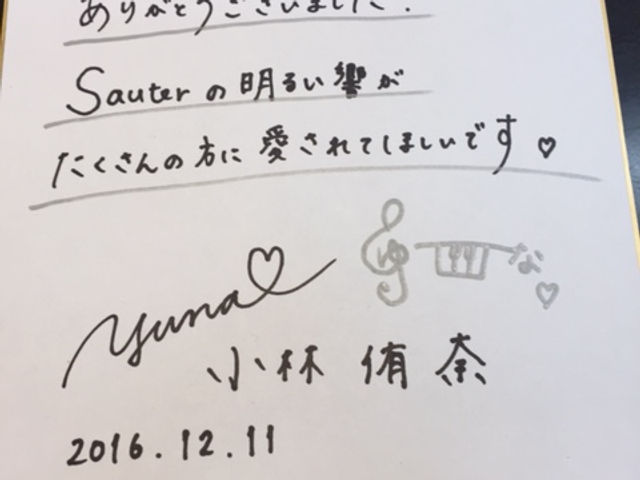 ありがとうございました!
Sauterの明るい響が
たくさんの方に愛されてほしいです♡
ゆな♡
yuna♡
小林侑奈
2016.12.11